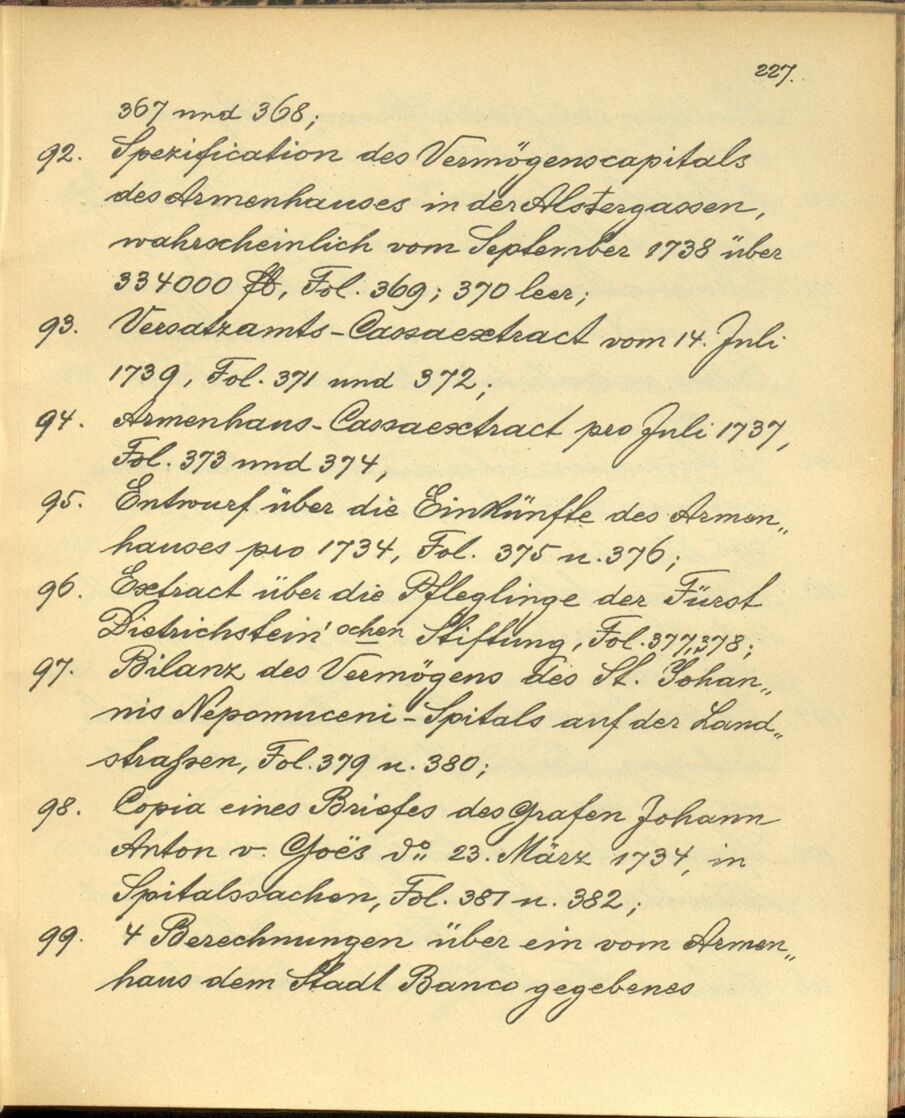 227.
367 und 368;
92. Spezification des Vermögenscapitals
des Armenhauses in der Alstergassen,
wahrscheinlich vom September 1738 über
334000 fl, Fol. 369; 370 leer;
93. Versatzamts-Cassaextract vom 14. Juli
1739, Fol. 371 und 372;
94. Armenhaus-Cassaextract pro Juli 1737,
Fol. 373 und 374,
95. Entwurf über die Einkünfte des Armen„
hauses pro 1734, Fol. 375 u. 376;
96. Extract über die Pfleglinge der Fürst
Dietrichstein'schen Stiftung, Fol. 377, 378;
97. Bilanz des Vermögens des St. Johan„
nis Nepomuceni-Spitals auf der Land„
straßen, Fol. 379 u. 380;
98. Copia eines Briefes des Grafen Johann
Anton v. Goës do 23. März 1734, in
Spitalssachen, Fol. 381 u. 382;
99. 4 Berechnungen über ein vom Armen„
haus dem Stadt Banco gegebenes